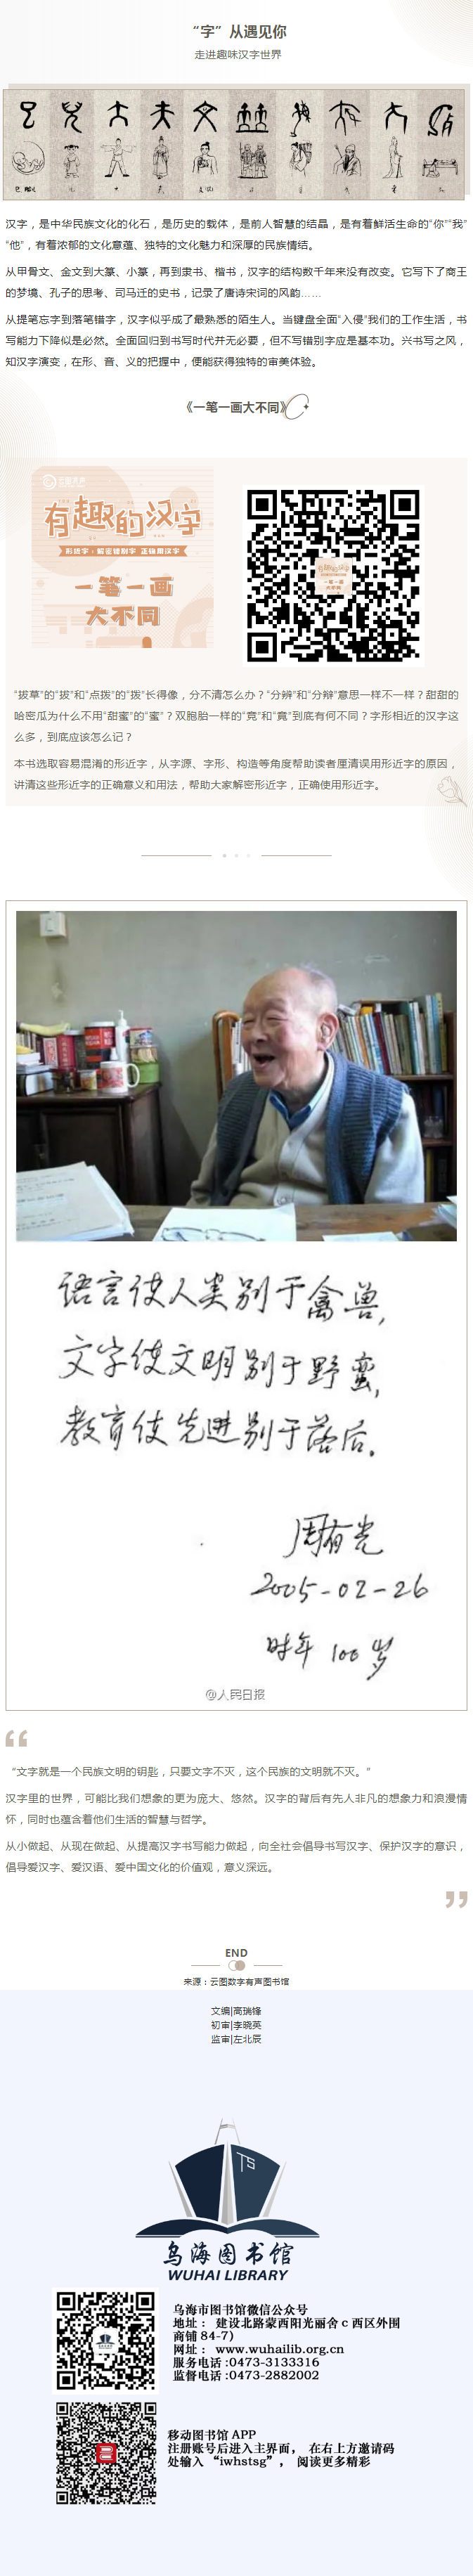 “字”从遇见你
走进趣味汉字世界
汉字，是中华民族文化的化石，是历史的载体，是前人智慧的结晶，是有着鲜活生命的“你”“我”
“他”，有着浓郁的文化意蕴、独特的文化魅力和深厚的民族情结。
从甲骨文、金文到大篆、小篆，再到隶书、楷书，汉字的结构数千年来没有改变。它写下了商王
的梦境、孔子的思考、司马迁的史书，记录了唐诗宋词的风韵……
从提笔忘字到落笔错字，汉字似乎成了最熟悉的陌生人。当键盘全面“入侵”我们的工作生活，书
写能力下降似是必然。全面回归到书写时代并无必要，但不写错别字应是基本功。兴书写之风，
知汉字演变，在形、音、义的把握中，便能获得独特的审美体验。
《一笔一画大不同》
有趣的汉字
形近字·解密错别字 正确用汉字
一笔一画
大不同
“拔草”的“拔”和“点拨”的“拨”长得像，分不清怎么办？“分辨”和“分辩”意思一样不一样？甜甜的
哈密瓜为什么不用“甜蜜”的“蜜”？双胞胎一样的“竞”和“竟”到底有何不同？字形相近的汉字这
么多，到底应该怎么记？
本书选取容易混淆的形近字，从字源、字形、构造等角度帮助读者厘清误用形近字的原因，
讲清这些形近字的正确意义和用法，帮助大家解密形近字，正确使用形近字。
语言使人类别于禽兽，
文字使文明别于野蛮，
教育使先进别于落后。
周有光
2005-02-26
时年 100 岁
@人民日报
“文字就是一个民族文明的钥匙，只要文字不灭，这个民族的文明就不灭。”
汉字里的世界，可能比我们想象的更为庞大、悠然。汉字的背后有先人非凡的想象力和浪漫情
怀，同时也蕴含着他们生活的智慧与哲学。
从小做起、从现在做起、从提高汉字书写能力做起，向全社会倡导书写汉字、保护汉字的意识，
倡导爱汉字、爱汉语、爱中国文化的价值观，意义深远。
END
来源：云图数字有声图书馆
文编|高瑞锋
初审|李晓英
监审|左北辰
TS
乌海图书馆
WUHAI LIBRARY
乌海市图书馆微信公众号
地址： 建设北路蒙西阳光丽舍 c 西区外围
商铺 84-7)
网址： www.wuhailib.org.cn
服务电话 :0473-3133316
监督电话 :0473-2882002
移动图书馆 APP
注册账号后进入主界面， 在右上方邀请码
处输入 “iwhstsg”， 阅读更多精彩